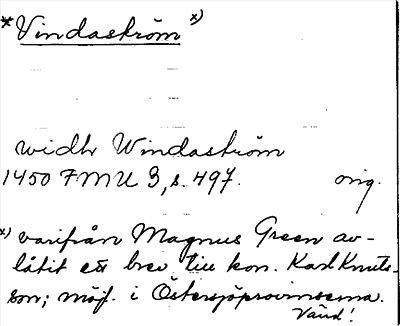 *Vindaström x)
widh Windaström
1450 FMU 3, s. 497. orig.
x) varifrån Magnus Green av-
låtit ett brev till kon. Karl Knuts-
son; möjl. i Östersjöprovinserna.
Vänd!